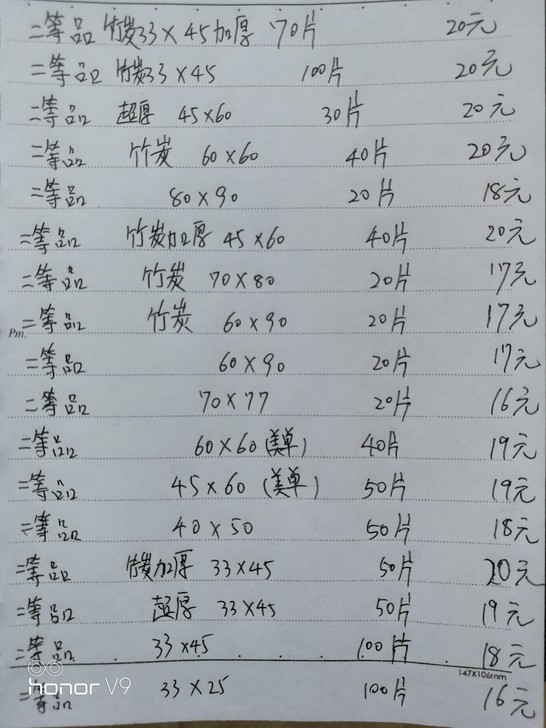 二等品 竹炭33×45加厚 70片 20元
二等品 竹炭33×45 100片 20元
二等品 超厚 45×60 30片 20元
二等品 竹炭 60×60 40片 20元
二等品 80×90 20片 18元
二等品 竹炭加厚 45×60 40片 20元
二等品 竹炭 70×80 20片 17元
Pm. 二等品 竹炭 60×90 20片 17元
二等品 60×90 20片 17元
二等品 70×77 20片 16元
二等品 60×60(美单) 40片 19元
二等品 45×60(美单) 50片 19元
二等品 40×50 50片 18元
二等品 竹炭加厚 33×45 50片 20元
二等品 超厚 33×45 50片 19元
二等品 33×45 100片 18元
147X106mm
二等品 33×25 100片 16元
honor V9